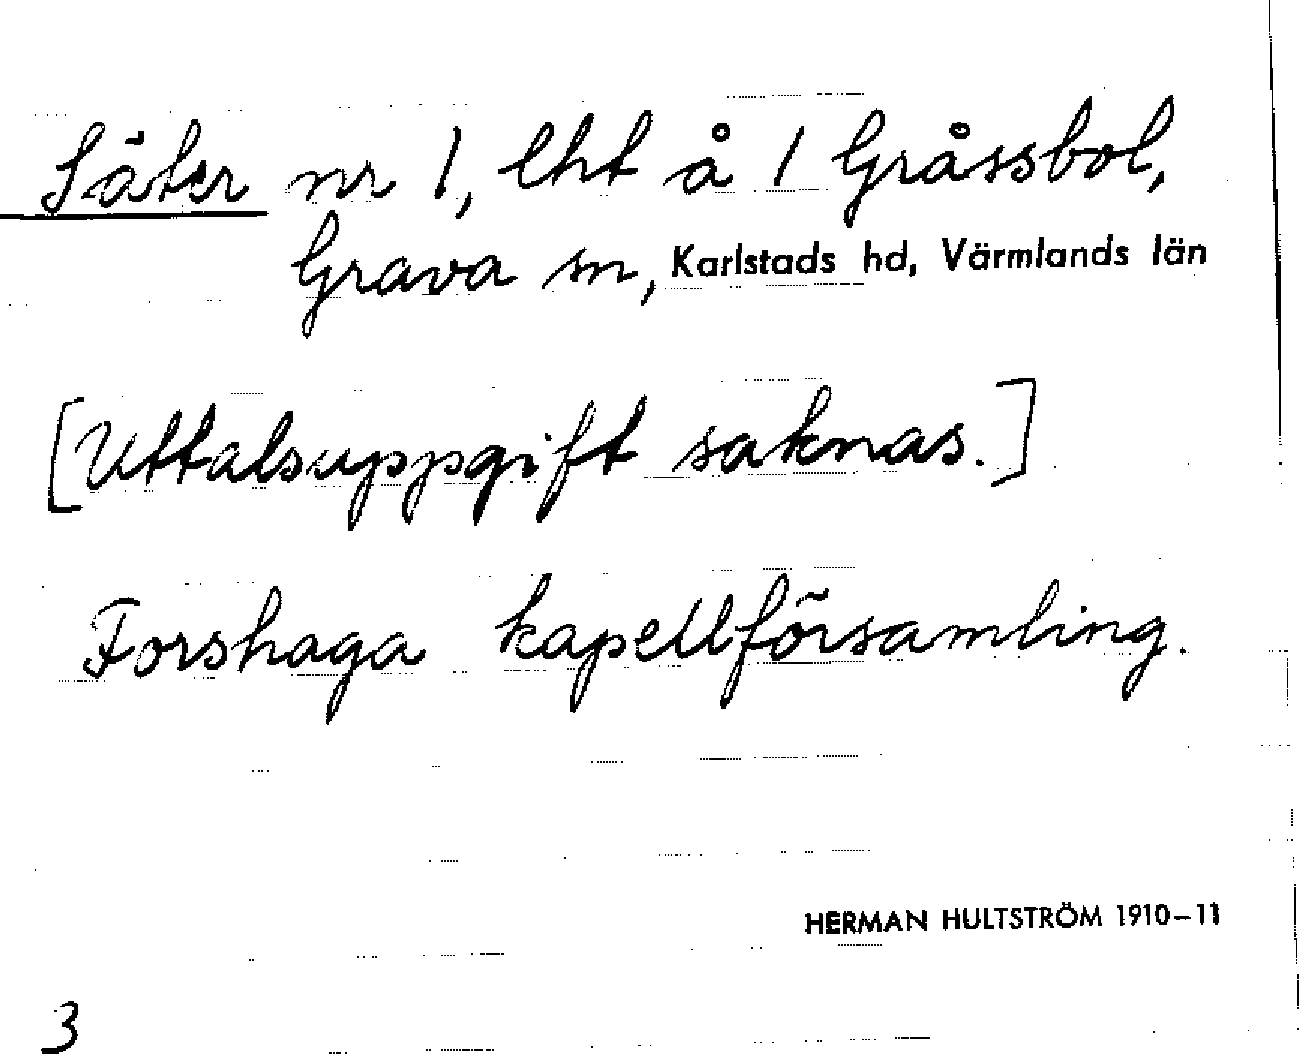 Säter nr 1, lht å 1 Gråssbol,
Grava sn, Karlstads hd, Värmlands län
[Uttalsuppgift saknas.]
Forshaga kapellförsamling.
HERMAN HULTSTRÖM 1910–11
3